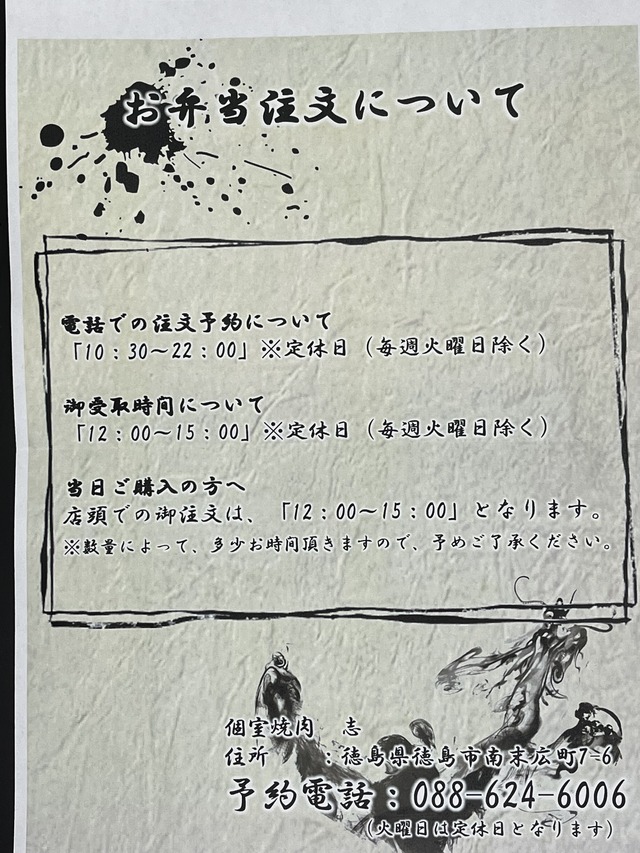 お弁当注文について
電話での注文予約について
「10：30～22：00」※定休日（毎週火曜日除く）
御受取時間について
「12：00～15：00」※定休日（毎週火曜日除く）
当日ご購入の方へ
店頭での御注文は、「12：00～15：00」となります。
※数量によって、多少お時間頂きますので、予めご了承ください。
個室焼肉　志
住所　　：徳島県徳島市南末広町7-6
予約電話：088-624-6006
（火曜日は定休日となります）